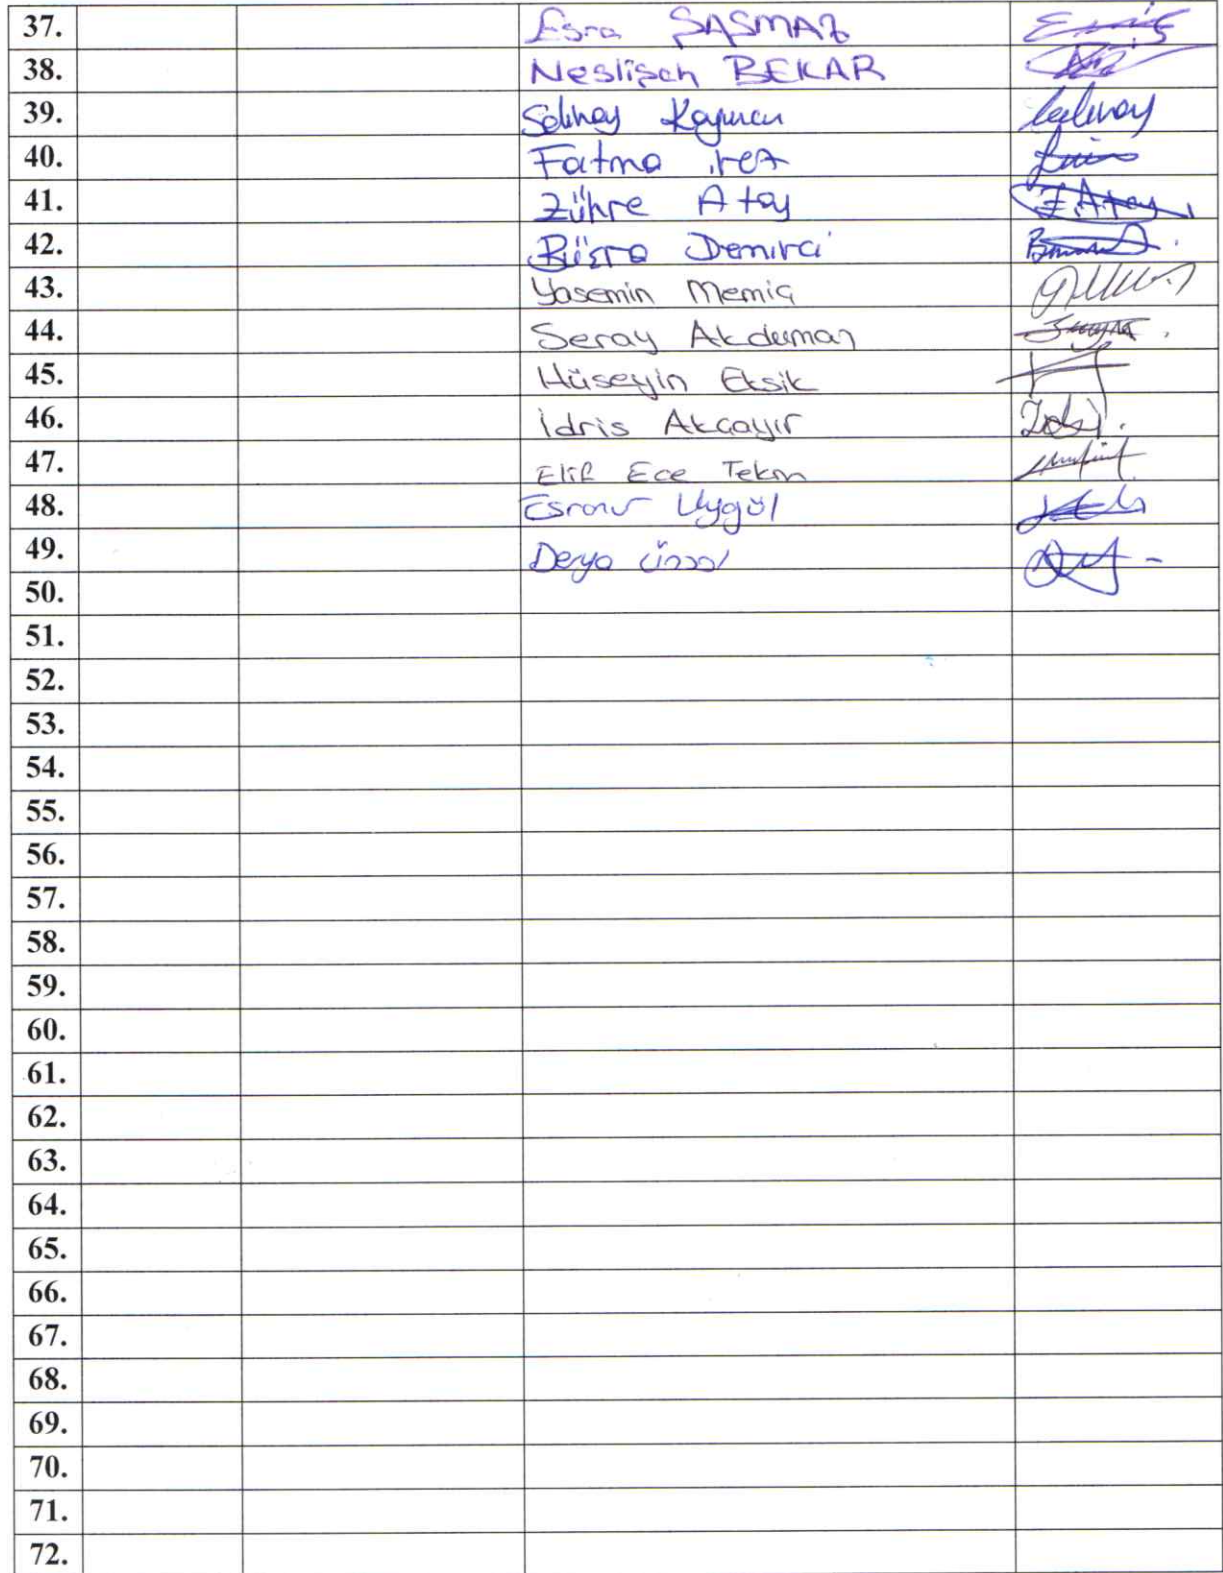 37. Esra ŞAŞMAZ
38. Neslişah BEKAR
39. Selinay
40. Fatma
41. Zühre Atay Z.Atay
42. Büşra Demirci
43. Yasemin Memiş
44. Seray Akduman
45. Hüseyin Eksik
46. İdris Akçayır
47. Elif Ece Tekin
48. Esranur Uygül
49. Derya
50.
51.
52.
53.
54.
55.
56.
57.
58.
59.
60.
61.
62.
63.
64.
65.
66.
67.
68.
69.
70.
71.
72.